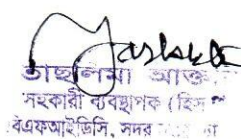 তাছলিমা আক্তার
সহকারী ব্যবস্থাপক (হিসাব
বিএফআইডিসি, সদর